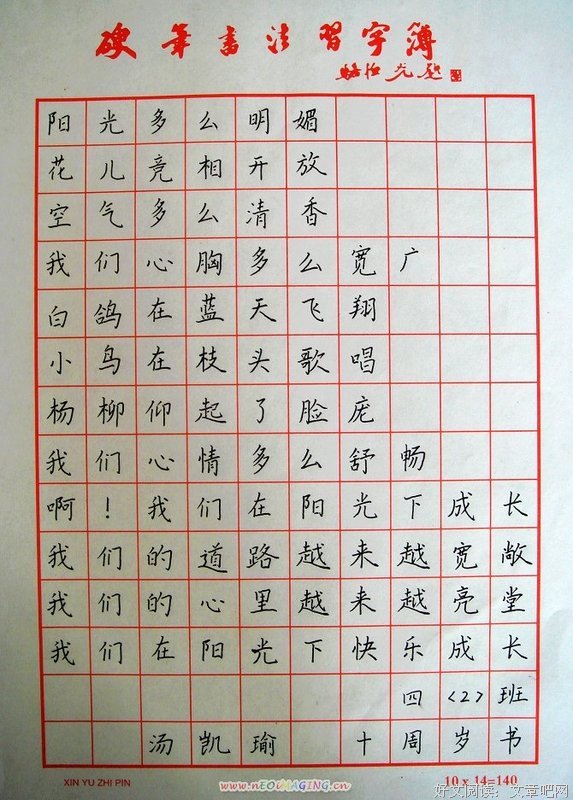 硬笔书法习字簿
阳光多么明媚
花儿竞相开放
空气多么清香
我们心胸多么宽广
白鸽在蓝天飞翔
小鸟在枝头歌唱
杨柳仰起了脸庞
我们心情多么舒畅
啊！我们在阳光下成长
我们的道路越来越宽敞
我们的心里越来越亮堂
我们在阳光下快乐成长
四〈2〉班
汤凯瑜 十周岁书
XIN YU ZHI PIN
10 x 14=140
www.nEOiMAGING.cn
好文阅读：文章吧网